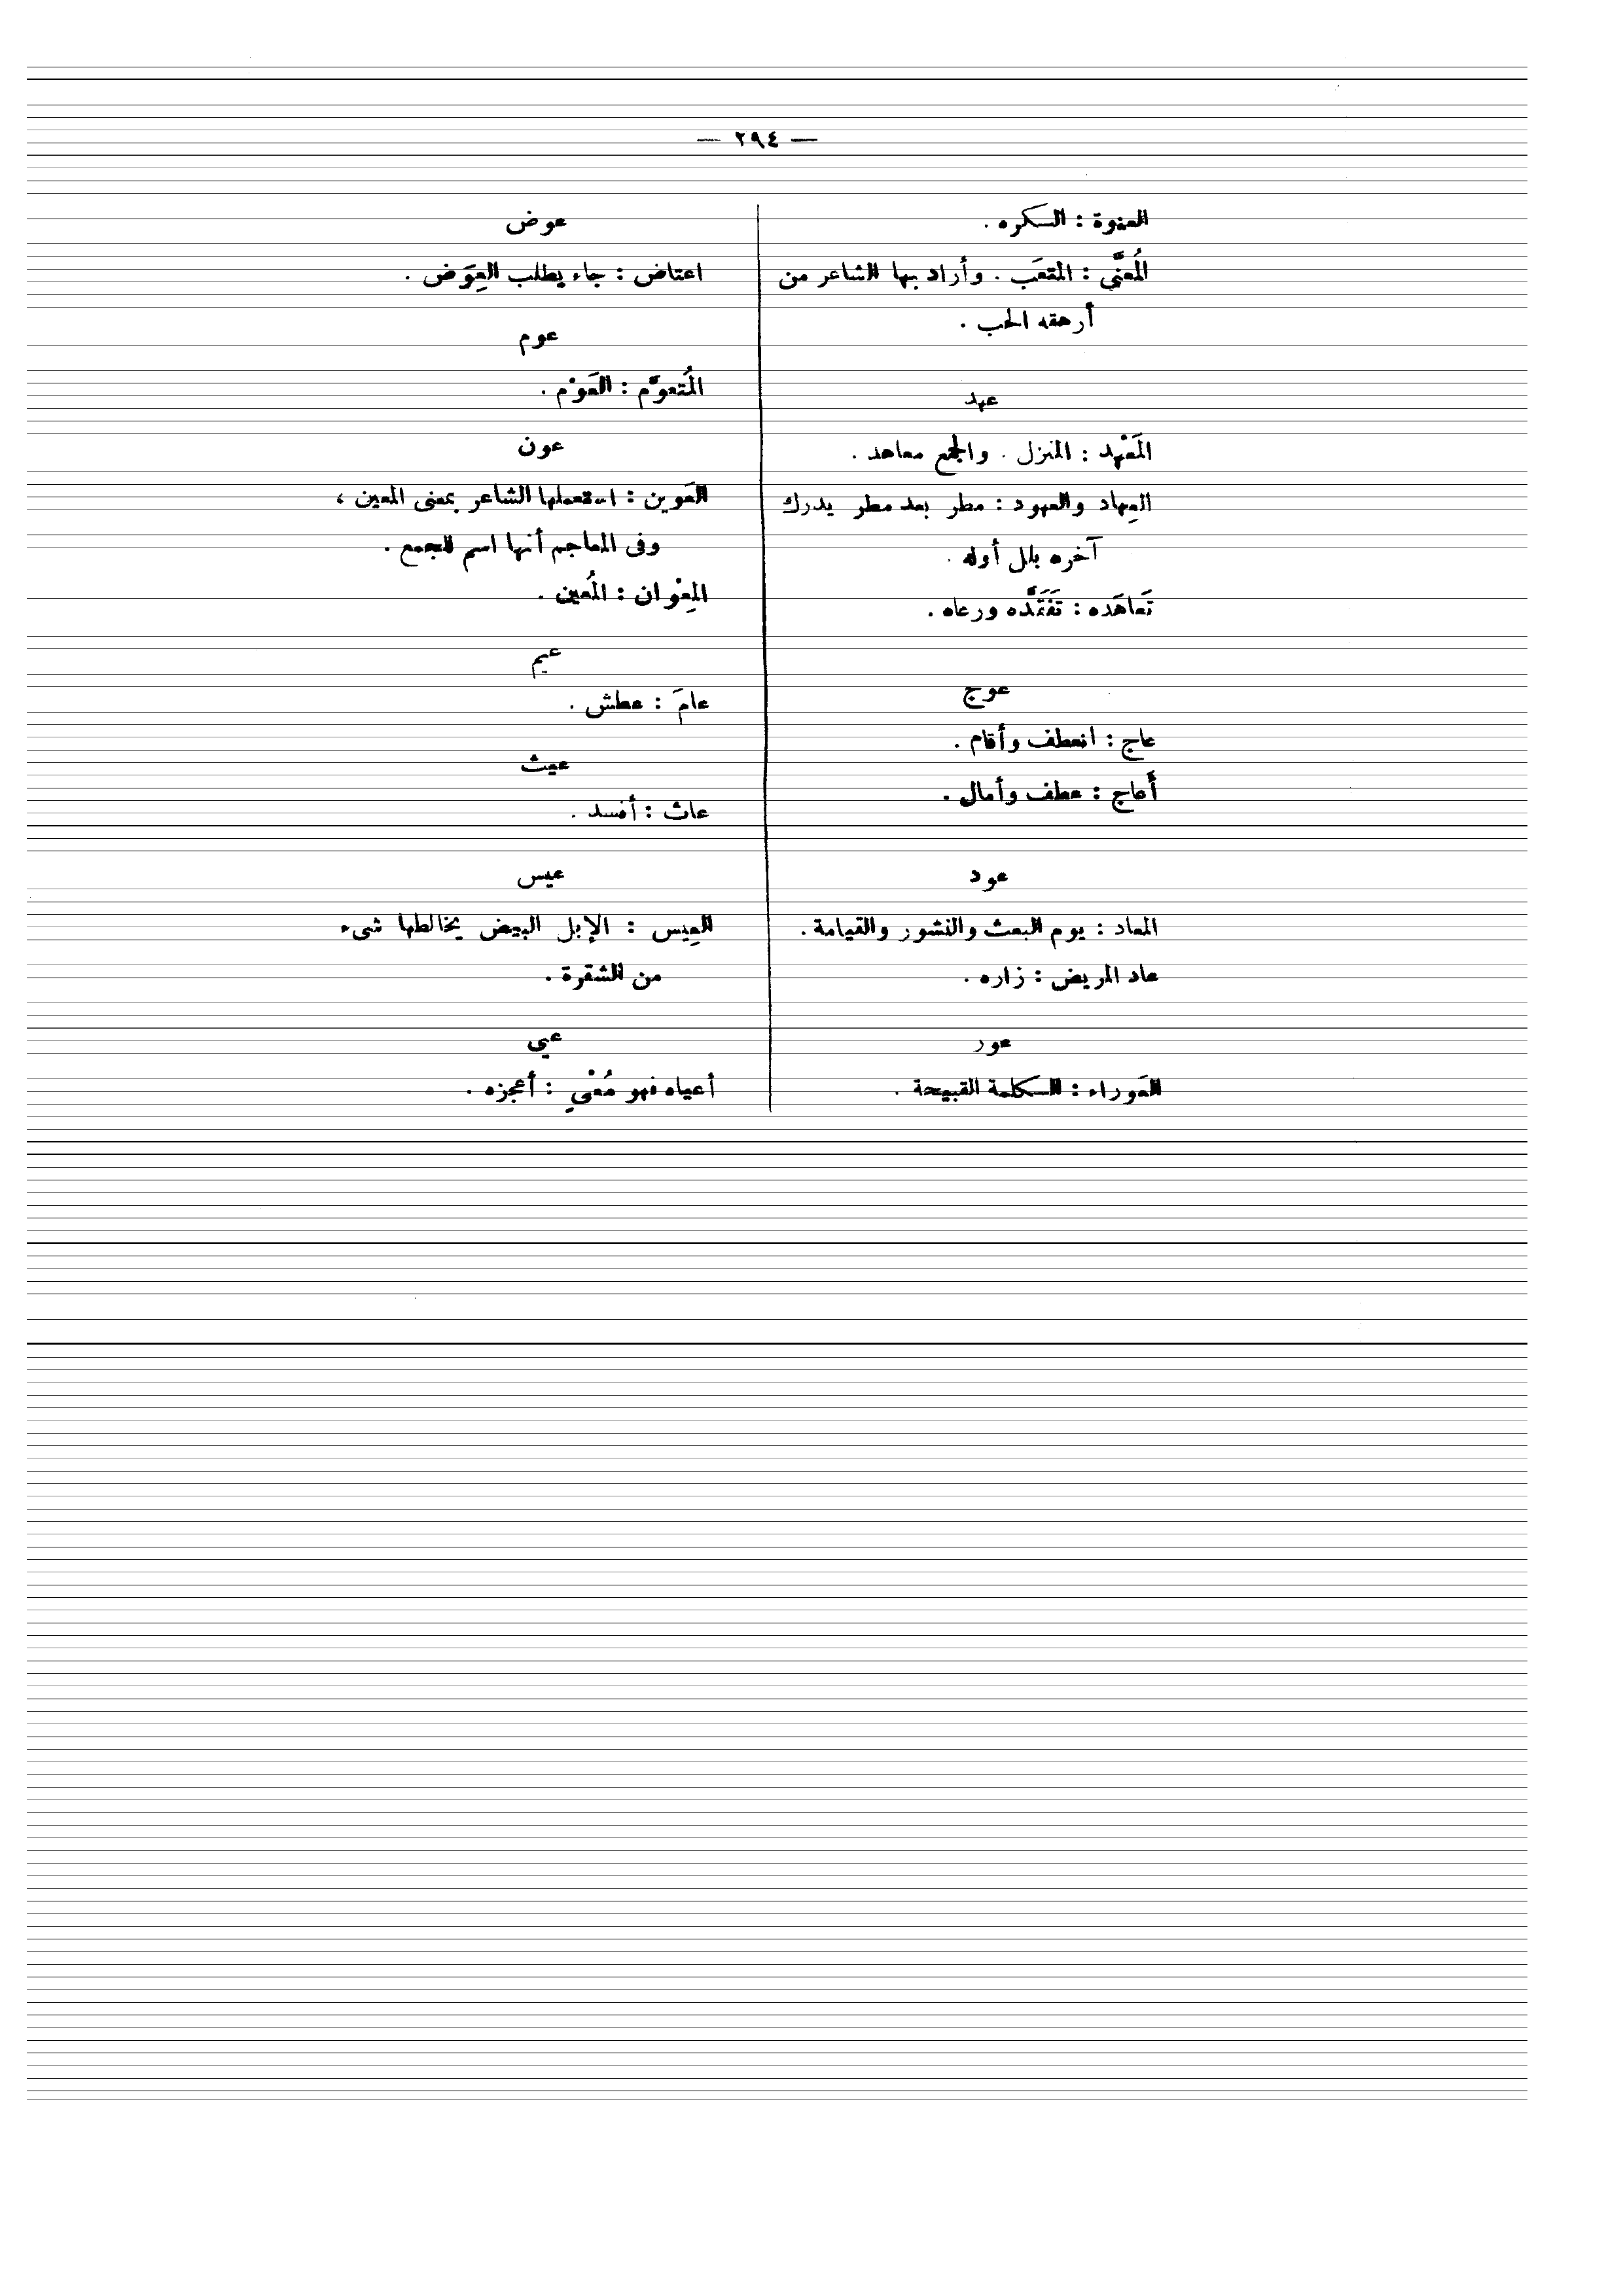 — ٢٩٤ —
العنوة : السكره .
المُعنَّى : المتعَب . وأراد بها الشاعر من
أرهقه الحب .
عهد
المَعْهد : المنزل . والجمع معاهد .
العِهاد والعهود : مطر بعد مطر يدرك
آخره بلل أوله .
تَعاهَده : تَفَقَّده ورعاه .
عوج
عاج : انعطف وأقام .
أعاج : عطف وأمال .
عود
المعاد : يوم البعث والنشور والقيامة .
عاد المريض : زاره .
عور
العَوراء : الكلمة القبيحة .
عوض
اعتاض : جاء يطلب العِوَض .
عوم
المُتعوَّم : العَوْم .
عون
العَوين : استعملها الشاعر بمعنى المعين ،
وفى المعاجم أنها اسم للجمع .
المِعْوان : المُعين .
عيم
عامَ : عطش .
عيث
عاث : أفسد .
عيس
العِيس : الإبل البيض يخالطها شىء
من الشقرة .
عيى
أعياه فهو مُعْىٍ : أعجزه .